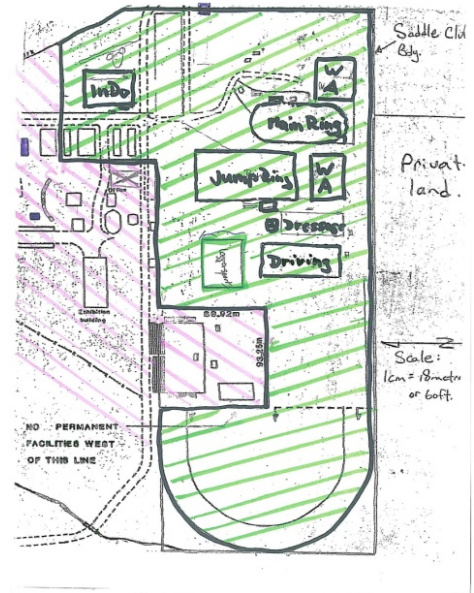 Saddle Club
Bdy.
InDo
W
A
Main Ring
Private
land.
Jump Ring
W
A
Office
Dressage
Driving
Exhibition
building
68.92m
93.25m
Scale:
1cm = 18 metre
or 60ft.
NO PERMANENT
FACILITIES WEST
OF THIS LINE